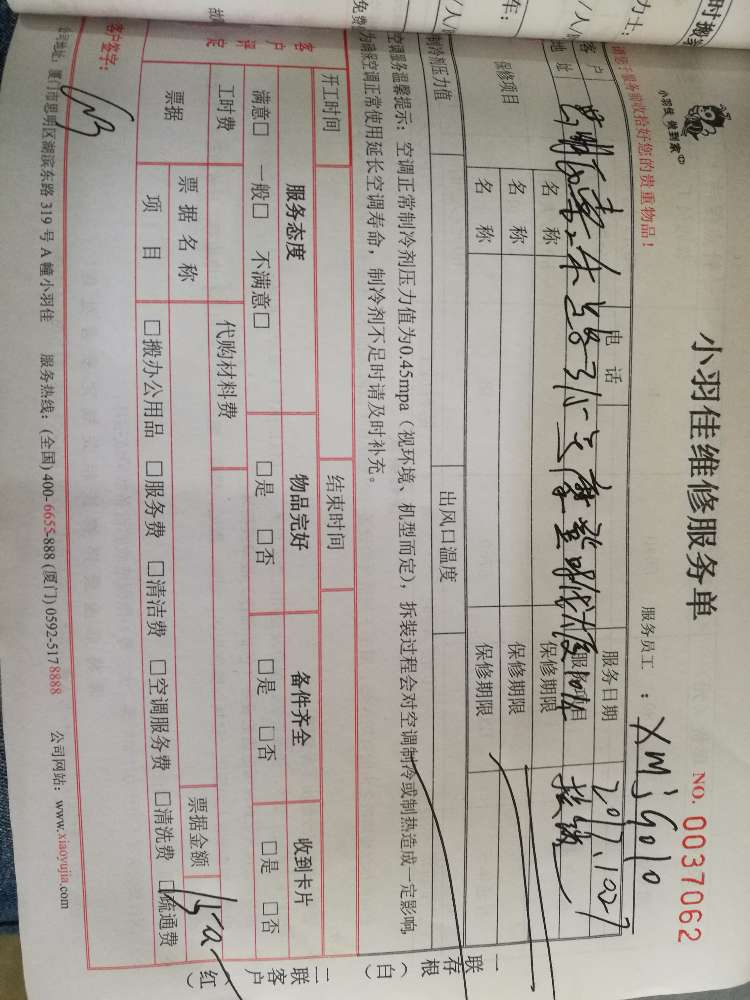 时搬
小羽佳 做到家
小羽佳维修服务单
NO. 0037062
请您于服务前收拾好您的贵重物品！
服务员工 ：
客户
电话
服务日期
2017.1027
地址
保修项目
名称
保修期限
名称
保修期限
名称
保修期限
制冷剂压力值
出风口温度
空调服务温馨提示：空调正常制冷剂压力值为0.45mpa（视环境、机型而定），拆装过程会对空调制冷或制热造成一定影响，
为确保空调正常使用延长空调寿命，制冷剂不足时请及时补充。
一联存根（白）
开工时间
结束时间
客户评定
服务态度
物品完好
备件齐全
收到卡片
满意□ 一般□ 不满意□
□是 □否
□是 □否
□是 □否
工时费
代购材料费
票据
票据名称
票据金额
项目
□搬办公用品 □服务费 □清洁费 □空调服务费 □清洗费 □疏通费
二联客户（红）
客户签字：
公司地址：厦门市思明区湖滨东路319号A幢小羽佳 服务热线：(全国)400-6655-888 (厦门)0592-5178888 公司网站：www.xiaoyujia.com